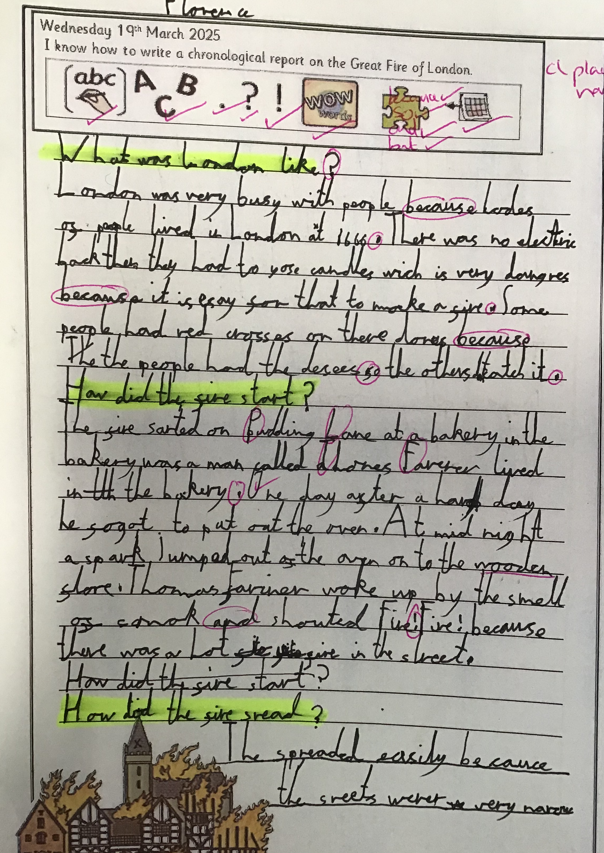 Florence
Wednesday 19th March 2025
I know how to write a chronological report on the Great Fire of London.
abc A B C . ? ! WOW words
because
and
but
What was London like?
London was very busy with people because lodes
of people lived in London at 1666. There was no electric
back then they had to yose candles wich is very dangres
because it is esay for that to make a fire. Some
people had red crosses on there dores because
the people had the desees so the others katch it.
How did the fire start?
The fire sarted on Pudding Lane at a bakery in the
bakery was a man called Thomes Farener lived
in the bakery. One day after a hard day
he fogot to put out the oven. At mid night
a spark jumped out of the oven on to the wooden
flore. Thomas Fariner woke up by the smell
of smok and shouted Fire! Fire! because
there was a lot fire in the street.
How did the fire start?
How did the fire sread?
The spreaded easily because
the sreets weret very narow